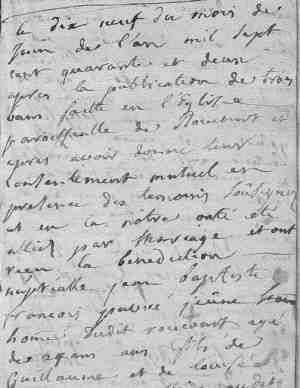 le dix neuf du mois de
Juin de l'an mil sept
cent quarante et deux
apres la publication de trois
bans faitte en l'Eglise
parroissialle de Roucourt et
apres avoir donné leur
Consentement mutuel en
presence des temoins soussignez
et en la nôtre ont été
alliez par Mariage et ont
receu la benediction
nuptialle jean baptiste
françois jeune
home dudit roucourt agé
de ans fils de
Guillaume et de